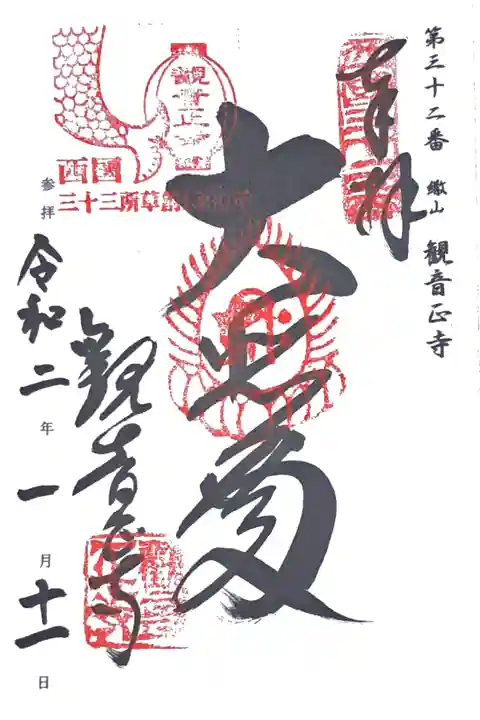 第三十二番 繖山 観音正寺
奉拝
大悲殿
観音正寺
西國
三十三所草創1300年
観音正寺
参拝 令和二年一月十一日